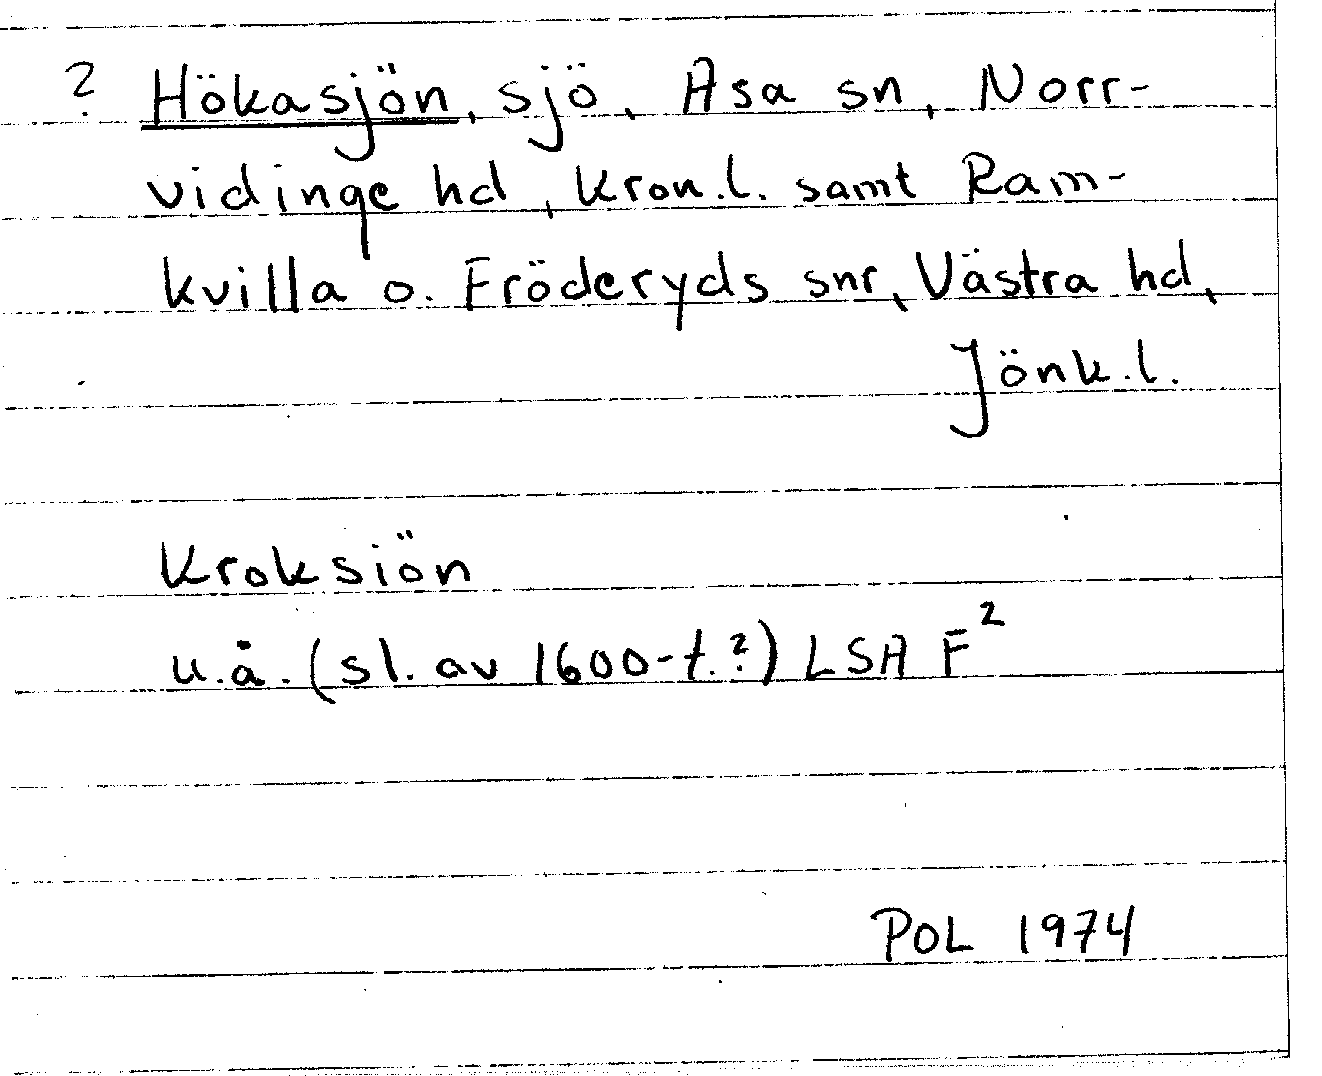 ? Hökasjön, sjö, Asa sn, Norr-
vidinge hd, Kron.l. samt Ram-
kvilla o. Fröderyds snr, Västra hd,
Jönk.l.
Kroksiön
u.å. (sl. av 1600-t.?) LSA F²
POL 1974